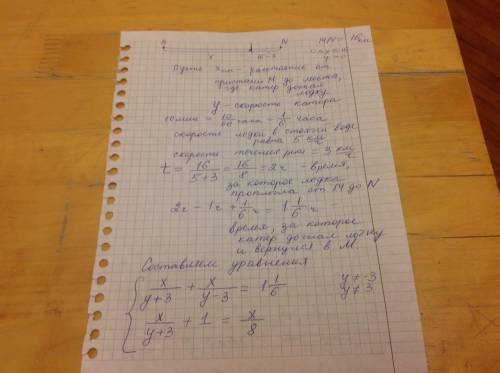 M N MN = 16 км
x 16-x
Пусть x км - расстояние от
пристани M до места,
где катер догнал
лодку
y - скорость катера
10 мин = 10/60 часа = 1/6 часа
скорость лодки в стоячей воде
равна 5 км/ч
скорость течения реки = 3 км/ч
t = 16/(5+3) = 16/8 = 2ч - время,
за которое лодка
проплыла от M до N
2ч - 1ч + 1/6 ч = 1 1/6 ч
время, за которое
катер догнал лодку
и вернулся в M.
Составляем уравнения
x/(y+3) + x/(y-3) = 1 1/6 y ≠ -3
y ≠ 3
x/(y+3) + 1 = x/8